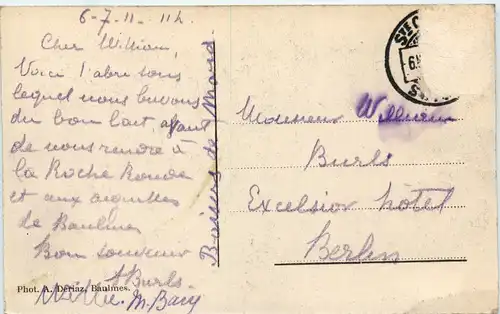 6-7-11. 11h.
Cher William,
Voici l'abri sous
lequel nous buvons
du bon lait, avant
de nous rendre à
la Roche Ronde
et aux aiguilles
de Baulmes
Bon souvenir
A Burls.
M. Bary
Phot. A. Deriaz, Baulmes.
Baisers de Maud
Monsieur William
Burls
Excelsior hôtel
Berlin